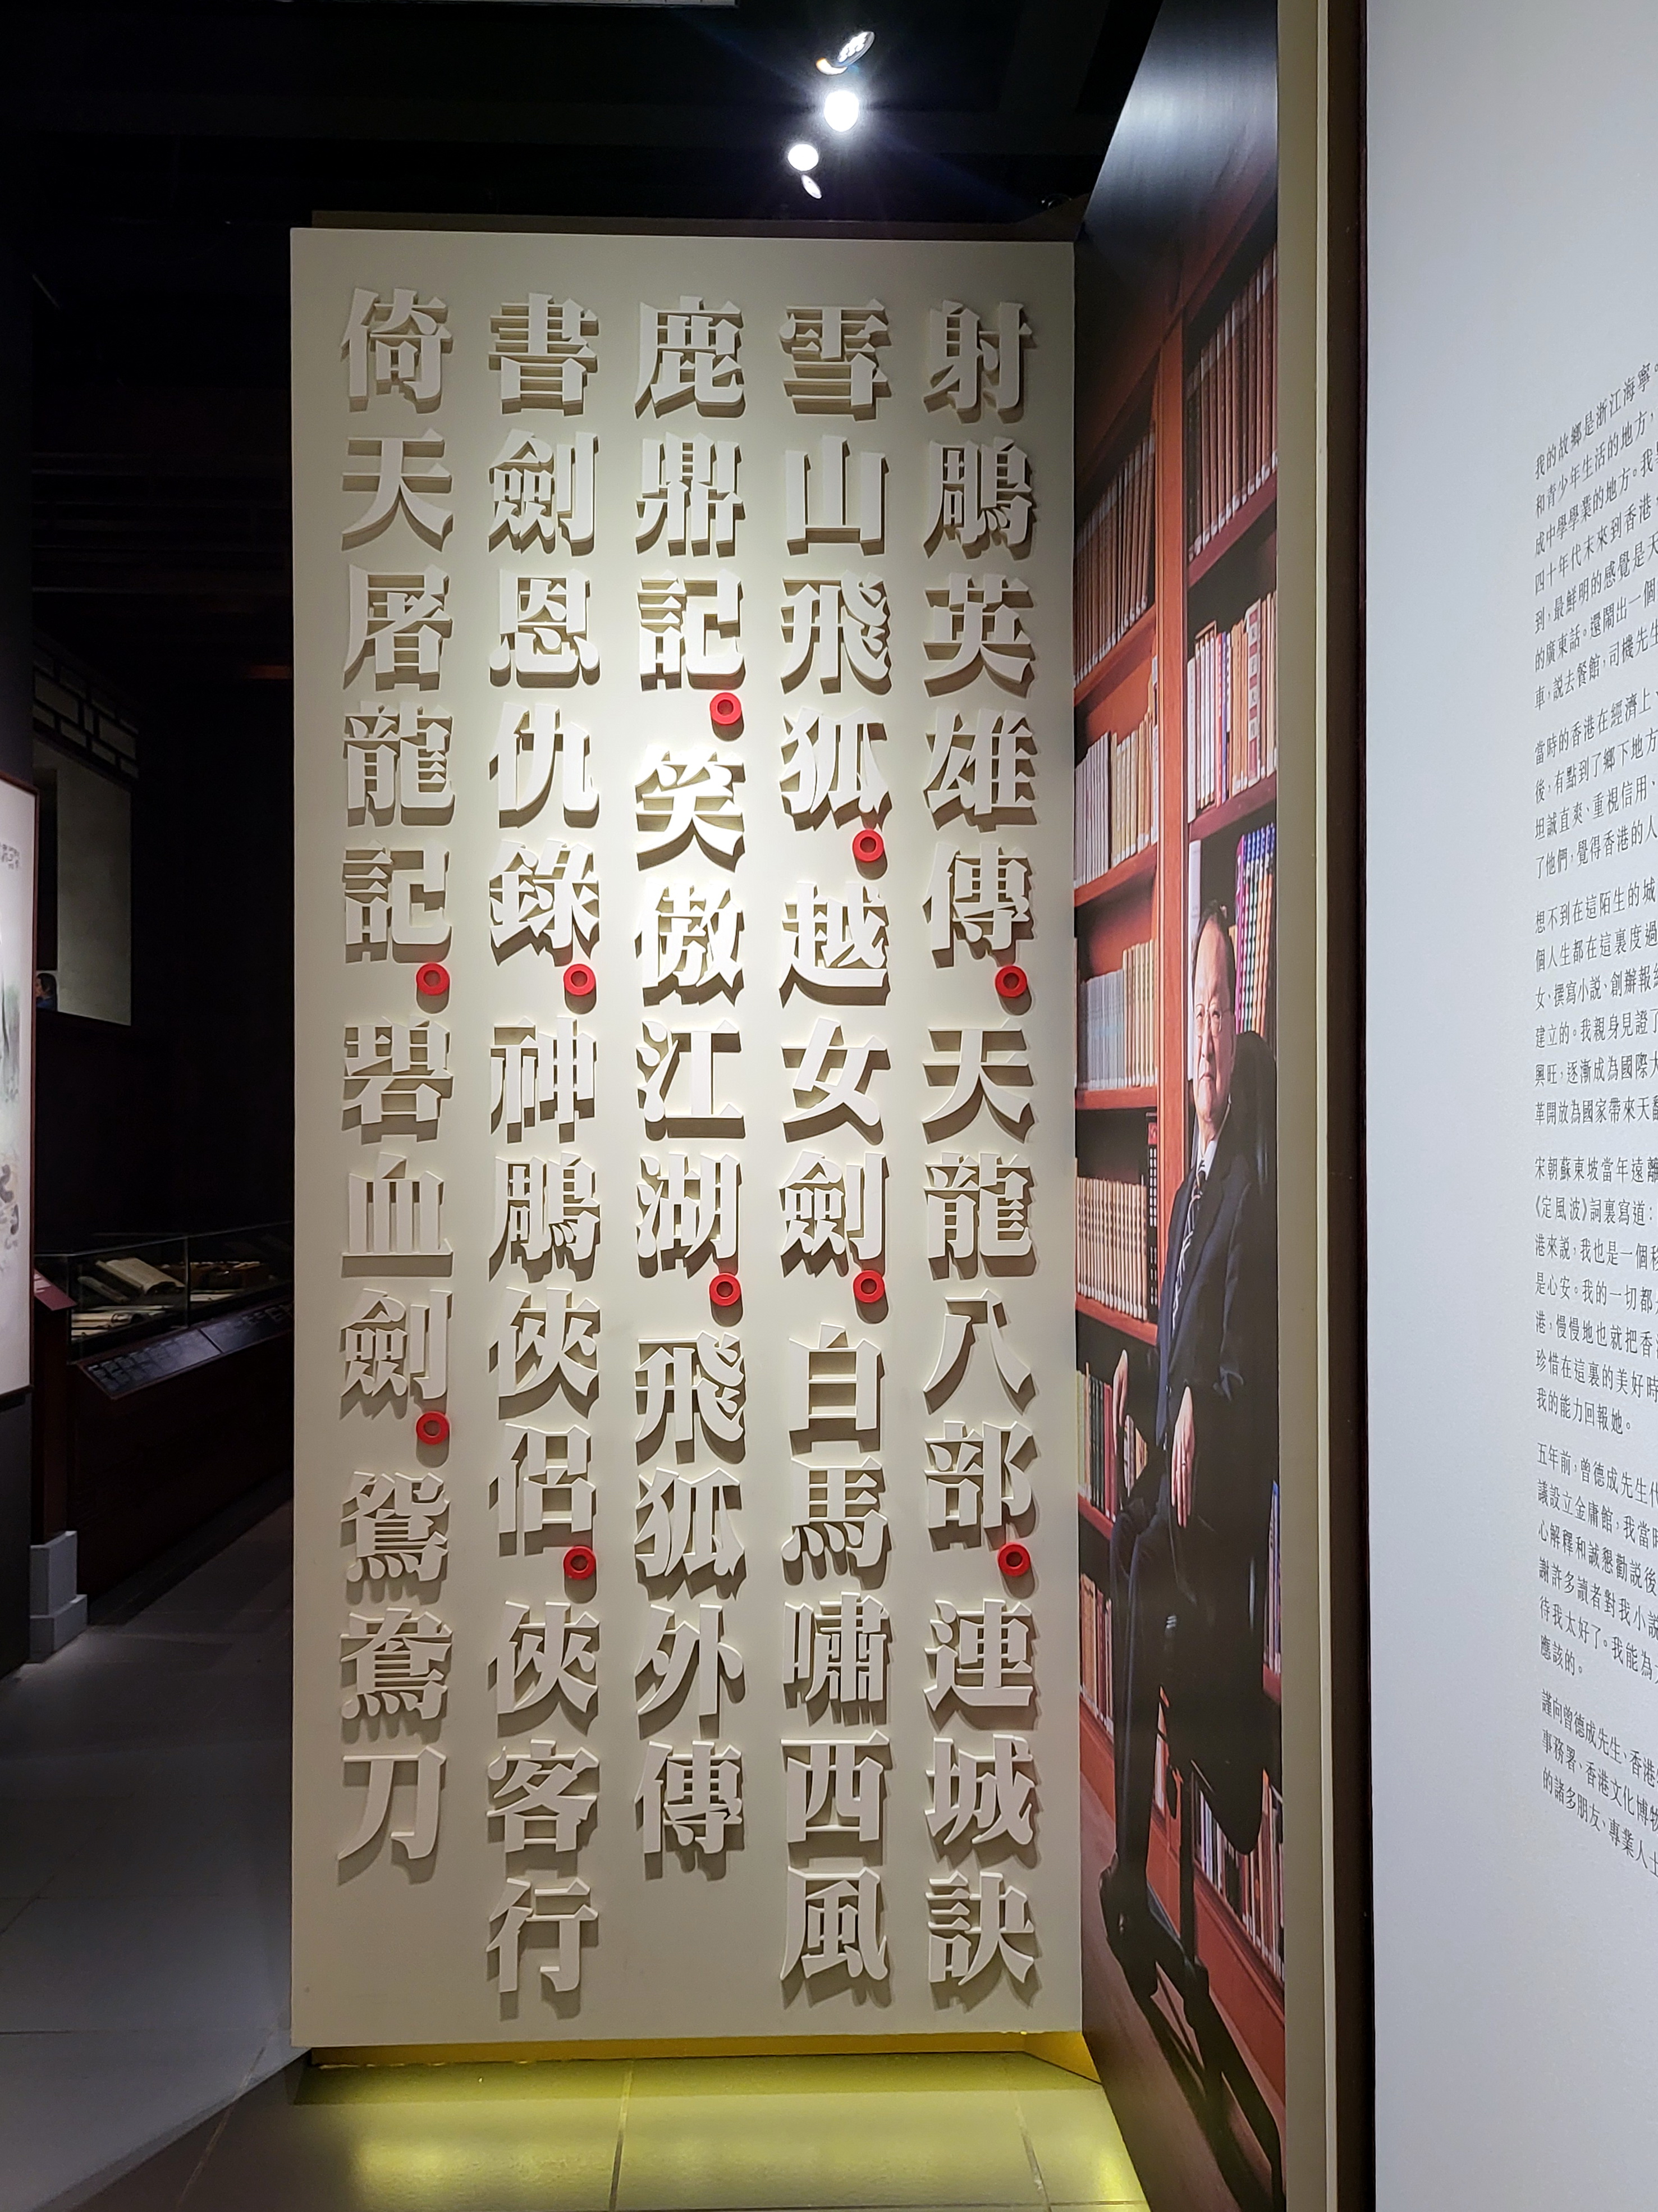 射鵰英雄傳。天龍八部。連城訣
雪山飛狐。越女劍。白馬嘯西風
鹿鼎記。笑傲江湖。飛狐外傳
書劍恩仇錄。神鵰俠侶。俠客行
倚天屠龍記。碧血劍。鴛鴦刀
我的故鄉是浙江海寧。
和青少年生活的地方，
成中學學業的地方。我
四十年代末來到香港，
到，最鮮明的感覺是天
的廣東話。還鬧出一個
車，說去餐館，司機先生
當時的香港在經濟上、
後，有點到了鄉下地方
坦誠直爽、重視信用、
了他們，覺得香港的人
想不到在這陌生的城
個人生都在這裏度過
女、撰寫小說、創辦報
建立的。我親身見證了
興旺，逐漸成為國際大
革開放為國家帶來天翻
宋朝蘇東坡當年遠離
《定風波》詞裏寫道：
港來說，我也是一個移
是心安。我的一切都
港，慢慢地也就把香港
珍惜在這裏的美好時
我的能力回報她。
五年前，曾德成先生代
議設立金庸館，我當時
心解釋和誠懇勸說後
謝許多讀者對我小說
待我太好了。我能為
應該的。
謹向曾德成先生、香港
事務署、香港文化博物
的諸多朋友、專業人士